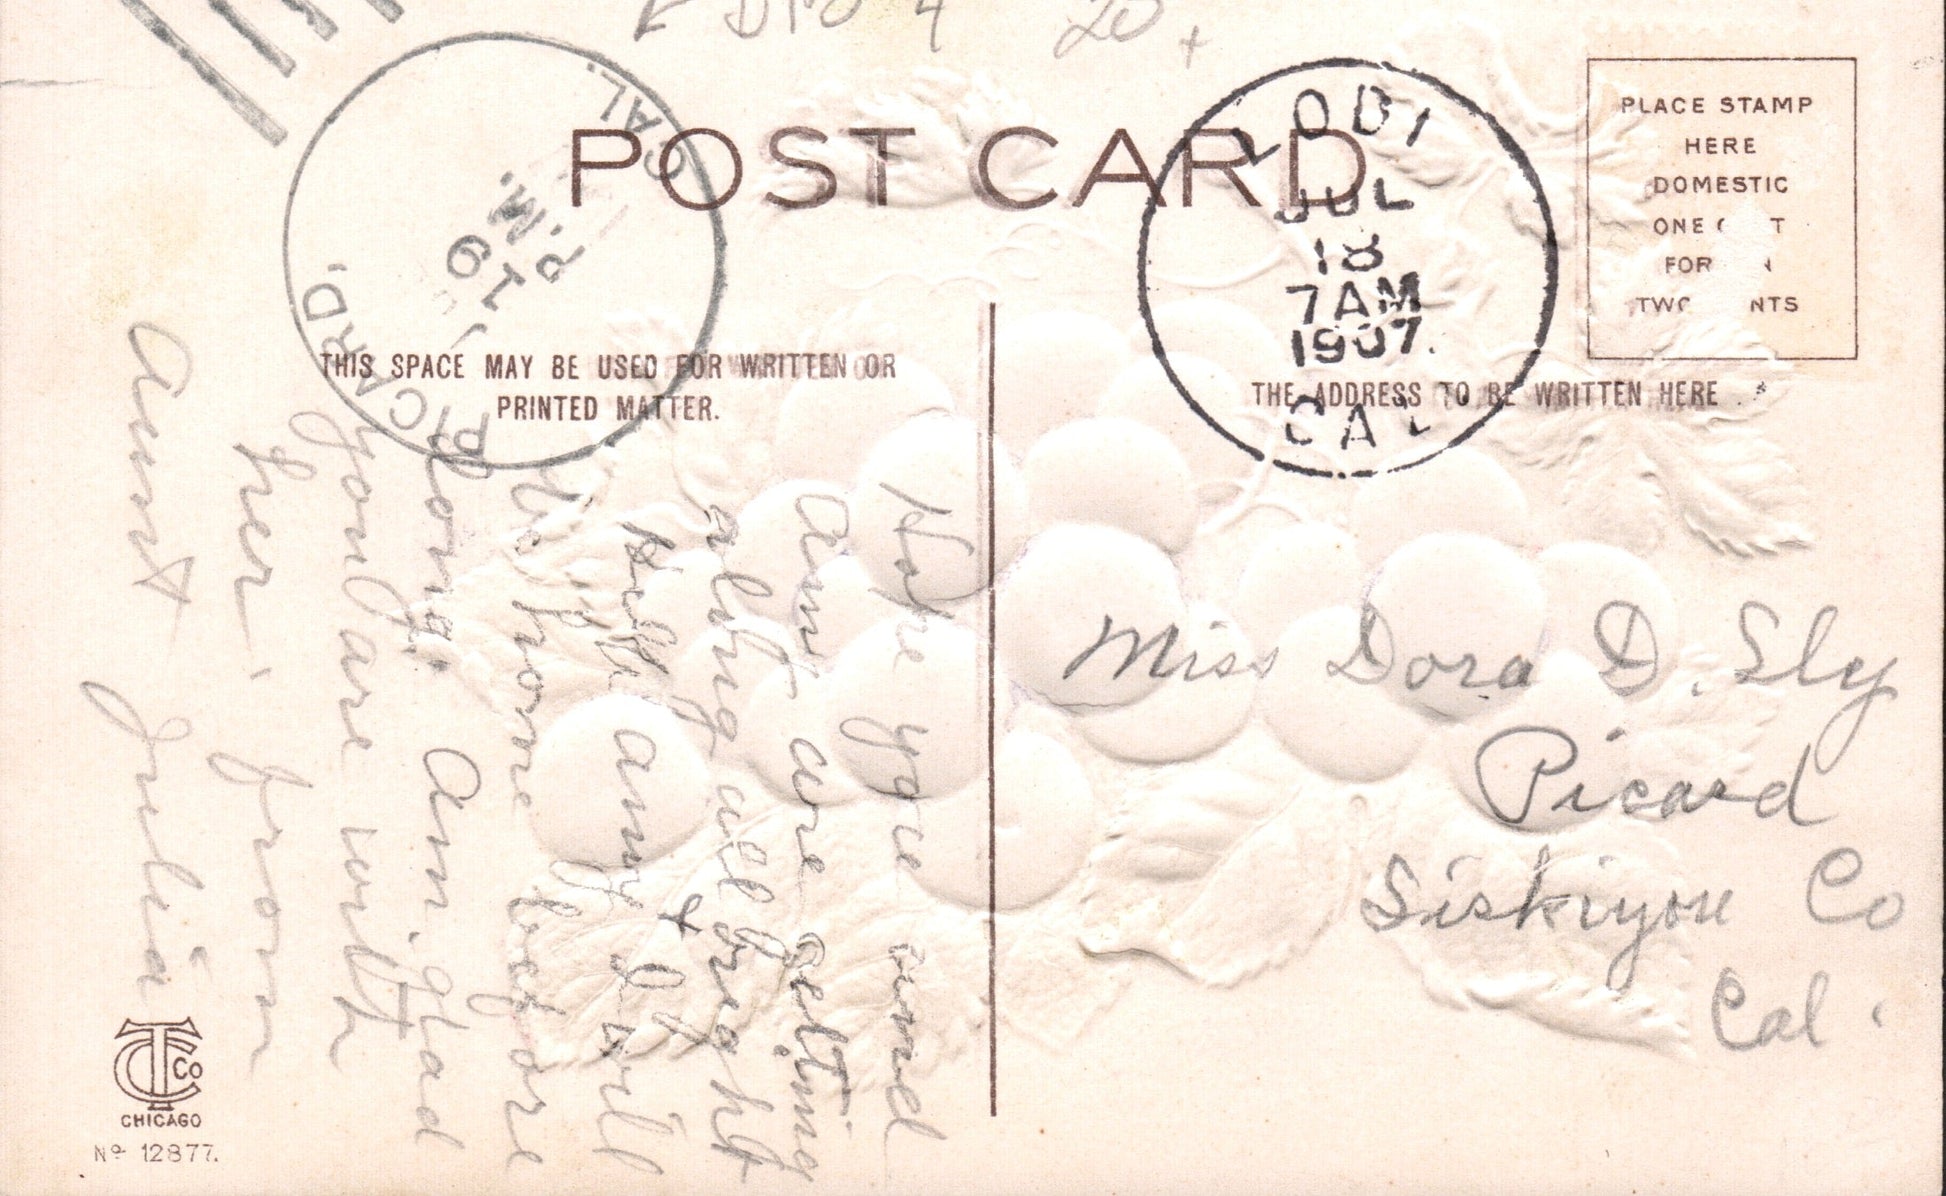 POST CARD
PICARD, CAL.
19
P.M.
LODI
JUL
18
7 AM
1907.
CAL
PLACE STAMP
HERE
DOMESTIC
ONE
FOR
THIS SPACE MAY BE USED FOR WRITTEN OR
PRINTED MATTER.
THE ADDRESS TO BE WRITTEN HERE
Hope you and
Aunt are getting
along all right
Kell any + I will
be home before
long. Am glad
you are with
her. from
Aunt Julia
Miss Dora D. Sly
Picard
Siskiyou Co
Cal.
TC Co
CHICAGO
No 12877.